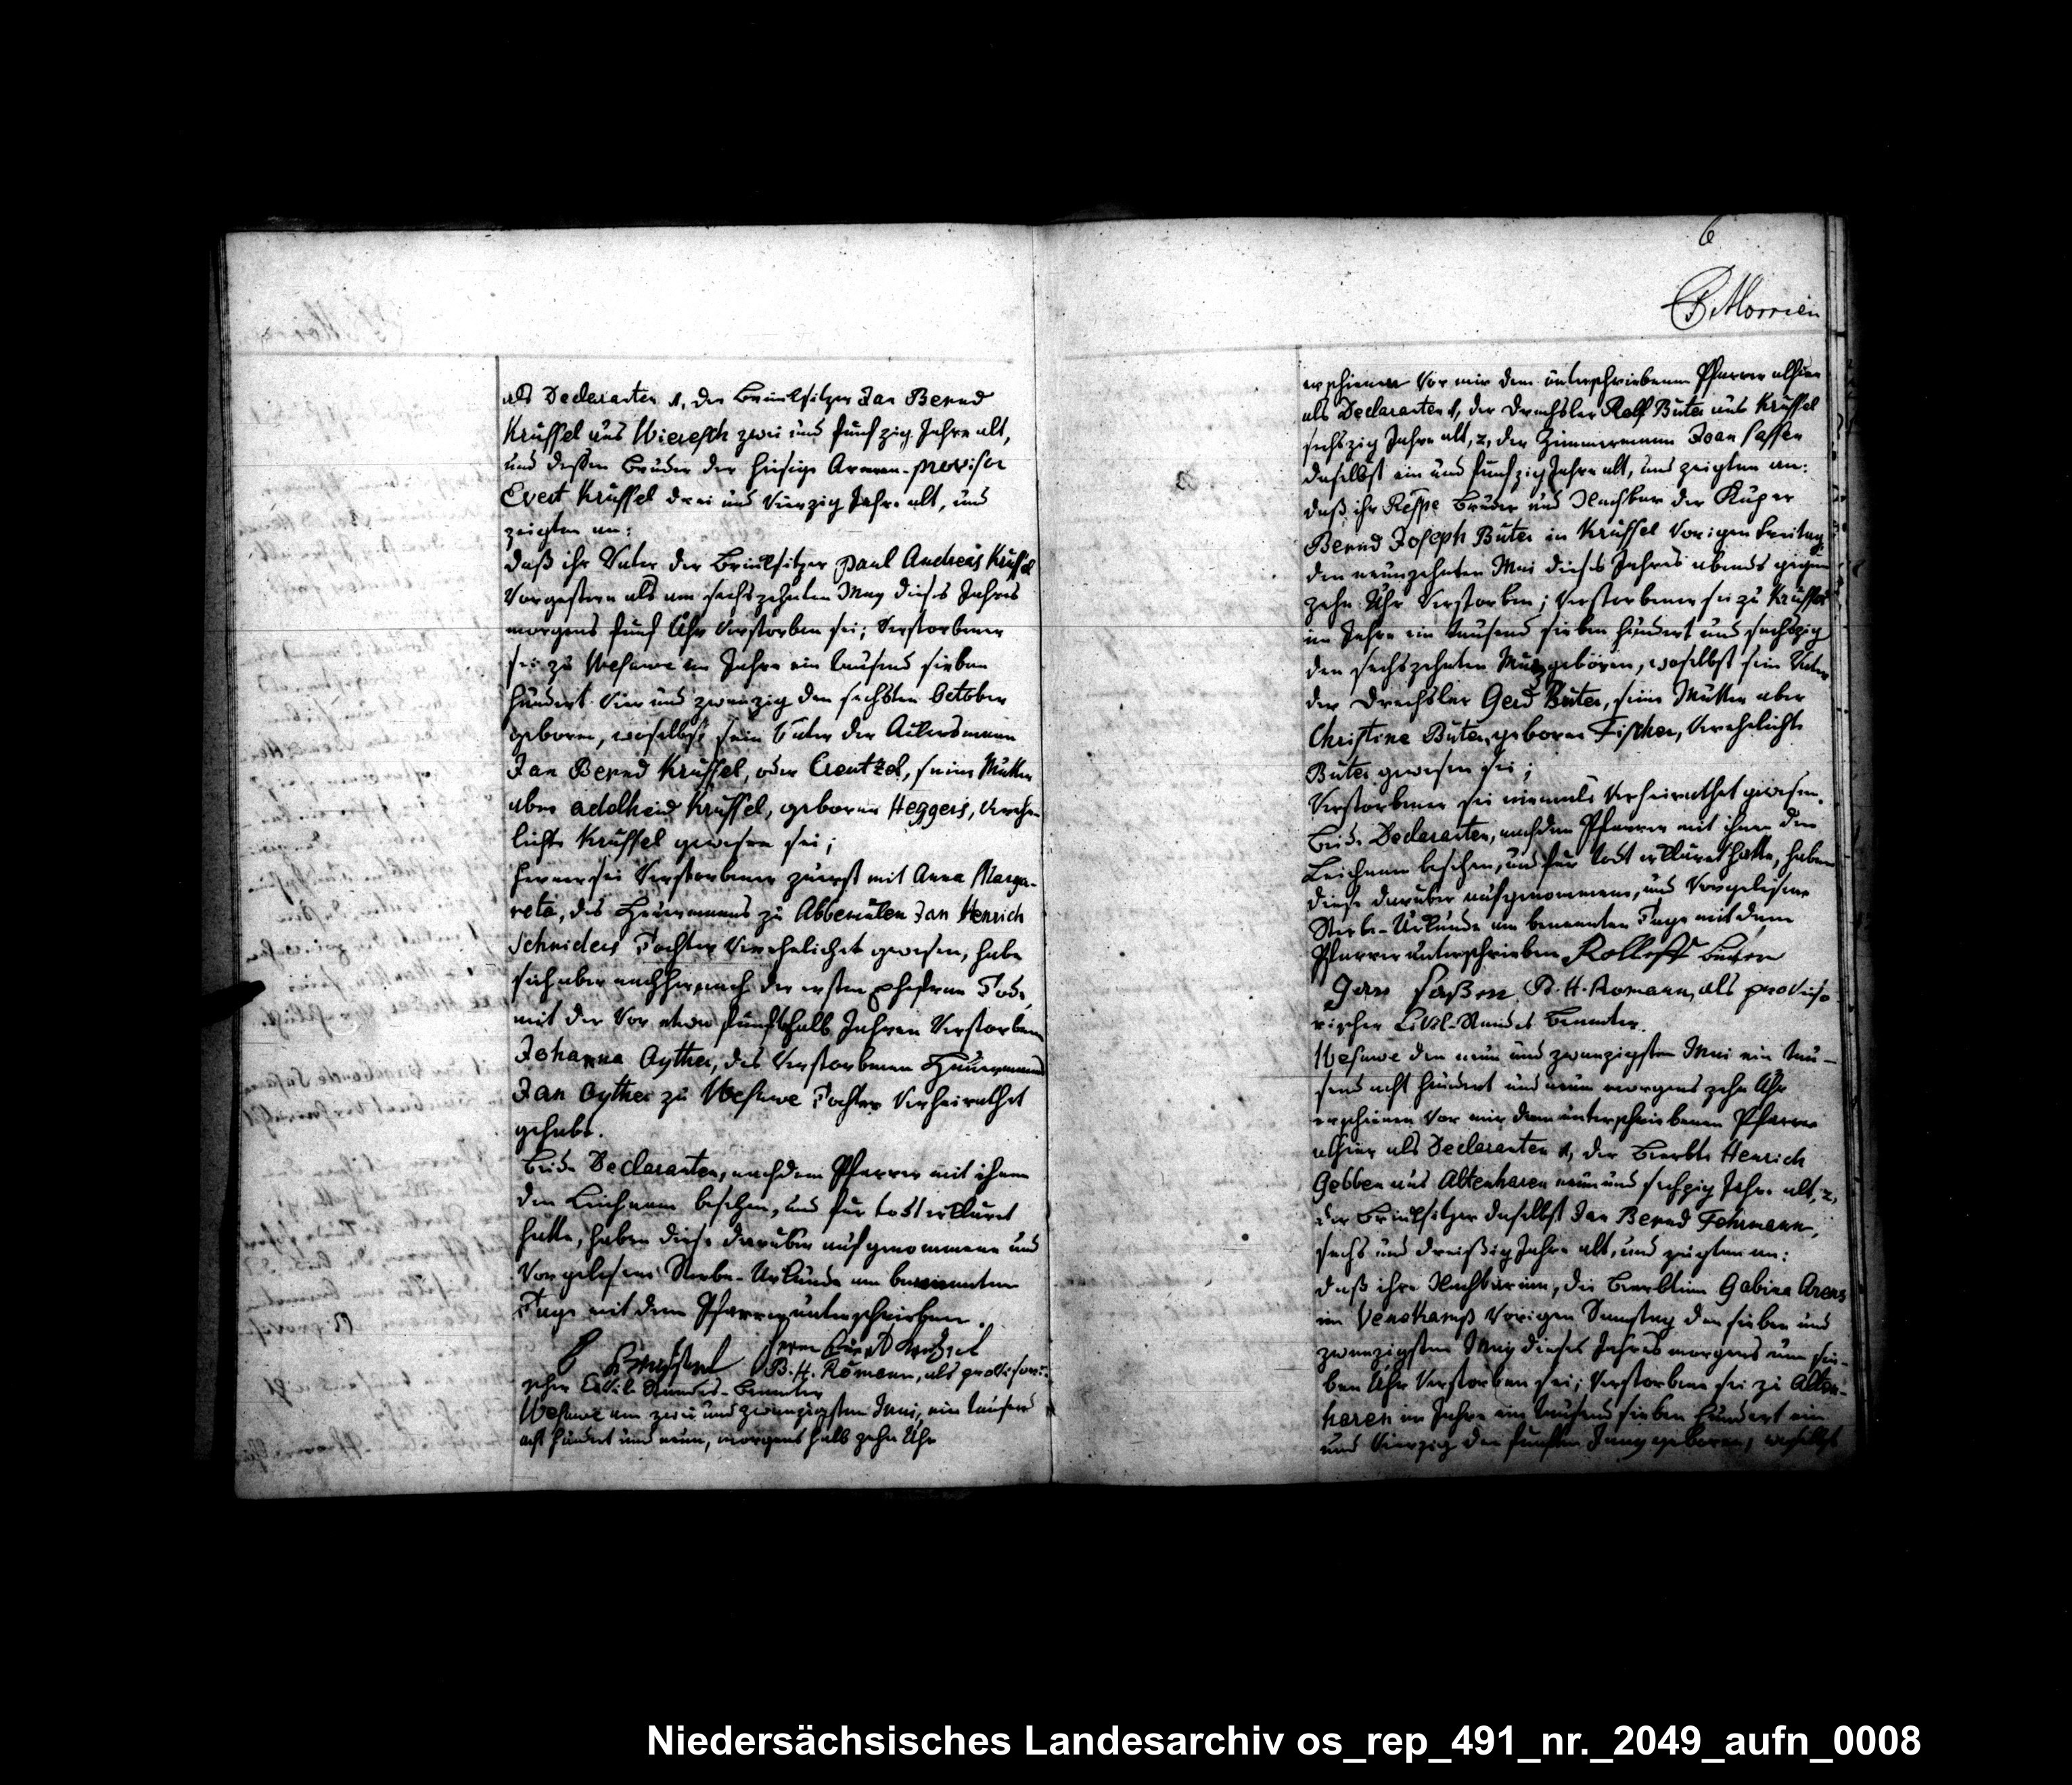 als Declaranten 1, der Brinksitzer Jan Bernd
Krüssel aus Wieresch zwei und funfzig Jahre alt,
und deßen Bruder der hiesige Armen-provisor
Evert Krüssel drei und Vierzig Jahre alt, und
zeigten an:
daß ihr Vater der Brinksitzer paul Andreas Krüssel
Vorgestern als am sechszehnten May dieses Jahres
morgens funf Uhr Verstorben sei; Verstorbener
sei zu Wesuwe im Jahre ein tausend sieben
hundert Vier und zwanzig den sechsten October
geboren, woselbst sein Vater der Ackersmann
Jan Bernd Krüssel, oder Creutzel, seine Mutter
aber adelheid Krüssel, geborne Heggers, Vereh-
lichte Krüssel gewesen sei;
ferner sei Verstorbener zuerst mit Anna Marga-
reta, des Heuermanns zu Abbemülen Jan Henrich
Schniders Tochter Verehelichet gewesen, habe
sich aber nachher, nach der ersten Ehefrau Tode,
mit der Vor etwa funftehalb Jahren Verstorbenen
Johanna Oyther, des Verstorbenen Heuermanns
Jan Oyther zu Wesuwe Tochter Verheirathet
gehabt.
Beide Declaranten, nachdem Pfarrer mit ihnen
den Leichnam besehen, und für todt erkläret
hatte, haben diese darüber aufgenommene und
Vorgelesene Sterbe-Urkunde am benannten
Tage mit dem Pfarrer unterschrieben.
B.H. Romann, als provisori-
scher Civil-Standes-Beamter
Wesuwe am zwei und zwanzigsten Mai, ein tausend
acht hundert und neun, morgens halb zehn Uhr
6
B Morrien
erschienen Vor mir dem unterschriebenen Pfarrer alhier
als Declaranten 1, der Drechsler Rolf Büter aus Krüssel
sechszig Jahre alt, 2, der Zimmermann Joan Sassen
daselbst ein und funfzig Jahre alt, und zeigten an:
daß ihr Respe Bruder und Nachbar der Küper
Bernd Joseph Büter in Krüssel Vorigen Freitag
den neunzehnten Mai dieses Jahres abends gegen
zehn Uhr Verstorben; Verstorbener sei zu Krüssel
im Jahre ein tausend sieben hundert und sechszig
den sechszehnten May geboren, woselbst sein Vater
der Drechsler Gerd Büter, seine Mutter aber
Christine Büter, geborne Fischer, Verehelichte
Büter gewesen sei;
Verstorbener sei niemals Verheirathet gewesen.
Beide Declaranten, nachdem Pfarrer mit ihnen den
Leichnam besehen, und für todt erkläret hatte, haben
diese darüber aufgenommene, und Vorgelesene
Sterbe-Urkunde am benannten Tage mit dem
Pfarrer unterschrieben. Rolleff Büter
Jan Saßen B.H. Romann, als proviso-
rischer Civil-Standes Beamter.
Wesuwe den neun und zwanzigsten Mai ein tau-
send acht hundert und neun morgens zehn Uhr
erschienen Vor mir dem unterschriebenen Pfarrer
alhier als Declaranten 1, der Beerbte Henrich
Gebben aus Altenharen neun und sechzig Jahre alt, 2,
der Brinksitzer daselbst Jan Bernd Fehrmann,
sechs und dreißig Jahre alt, und zeigten an:
daß ihre Nachbarinn, die Beerbtinn Gabina Arens
im Vorigen Samstag den sieben und
zwanzigsten May dieses Jahres morgens um sie-
ben Uhr Verstorben sei; Verstorbene sei zu Alten-
haren im Jahre ein tausend sieben hundert ein
und Vierzig den funften geboren, woselbst
Niedersächsisches Landesarchiv os_rep_491_nr._2049_aufn_0008